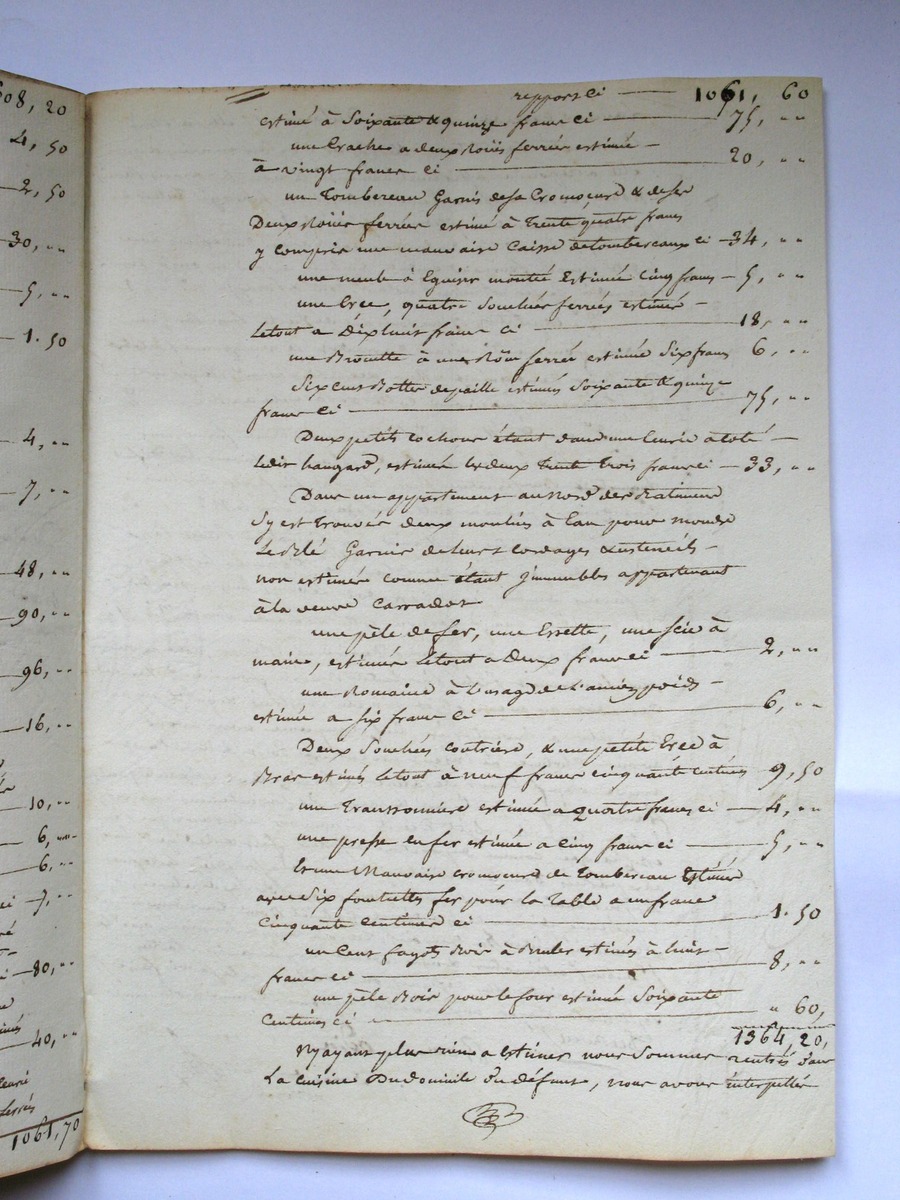 608, 20
4, 50
2, 50
30, ,,
5, ,,
1. 50
4, ,,
7, ,,
48, ,,
90, ,,
96, ,,
16, ,,
10, ,,
6, ,,
6, ,,
7, ,,
80, ,,
40, ,,
1061, 70
report ci 1061, 60
estimé à Soixante & quinze franc ci 75, ,,
une à deux Roüës ferrées estimé
à vingt francs ci 20, ,,
un Tombereau Garnis de sa & de ses
Deux Roües ferrées estimé à Trente quatre francs
y compris une mauvaise Caisse de tombereaux ci 34, ,,
une meule à Eguiser montée Estimée Cinq francs 5, ,,
une , quatre ferrées estimés
Letout a dixhuit franc ci 18, ,,
une Brouette à une Roüe ferrée estimée Six francs 6, ,,
Six cens Bottes depaille estimés Soixante & quinze
franc ci 75, ,,
Deux petits cochons étant dans une à coté
Ledit hangard, estimés les deux Trente Trois franc ci 33, ,,
Dans un appartement au Nord des Batiments
Sy est Trouvés deux moulins à Eau pour moudre
Le Blé Garnis de leurs cordages & ustencils
non estimés comme étant Jmmeubles appartenant
à la veuve
une pèle de fer, une Essette, une Scie à
main, estimés Letout a Deux franc ci 2, ,,
une Romaine à Lusage de L'ancien poids
estimée a six franc ci 6, ,,
Deux , & une petite à
Bras estimés Letout à neuf francs cinquante centimes 9, 50
une estimée a quatre francs ci 4, ,,
une presse en fer estimée a Cinq franc ci 5, ,,
Et une Mauvaise de Tombereau Estimée
avec Six fourchettes fer pour la Table a un franc
Cinquante centimes ci 1. 50
un Cent fagots Bois à Bruler estimés à huit
francs ci 8, ,,
une pèle Bois pour le four estimée Soixante
Centimes ci ,, 60,
1364, 20,
Nyayant plus rien a Estimer nous Sommes rentrés dans
La cuisine Du domicile du défunt, nous avons interpellée